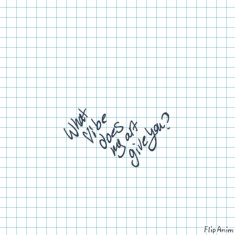 What
vibe
does
my art
give you?
FlipAnim